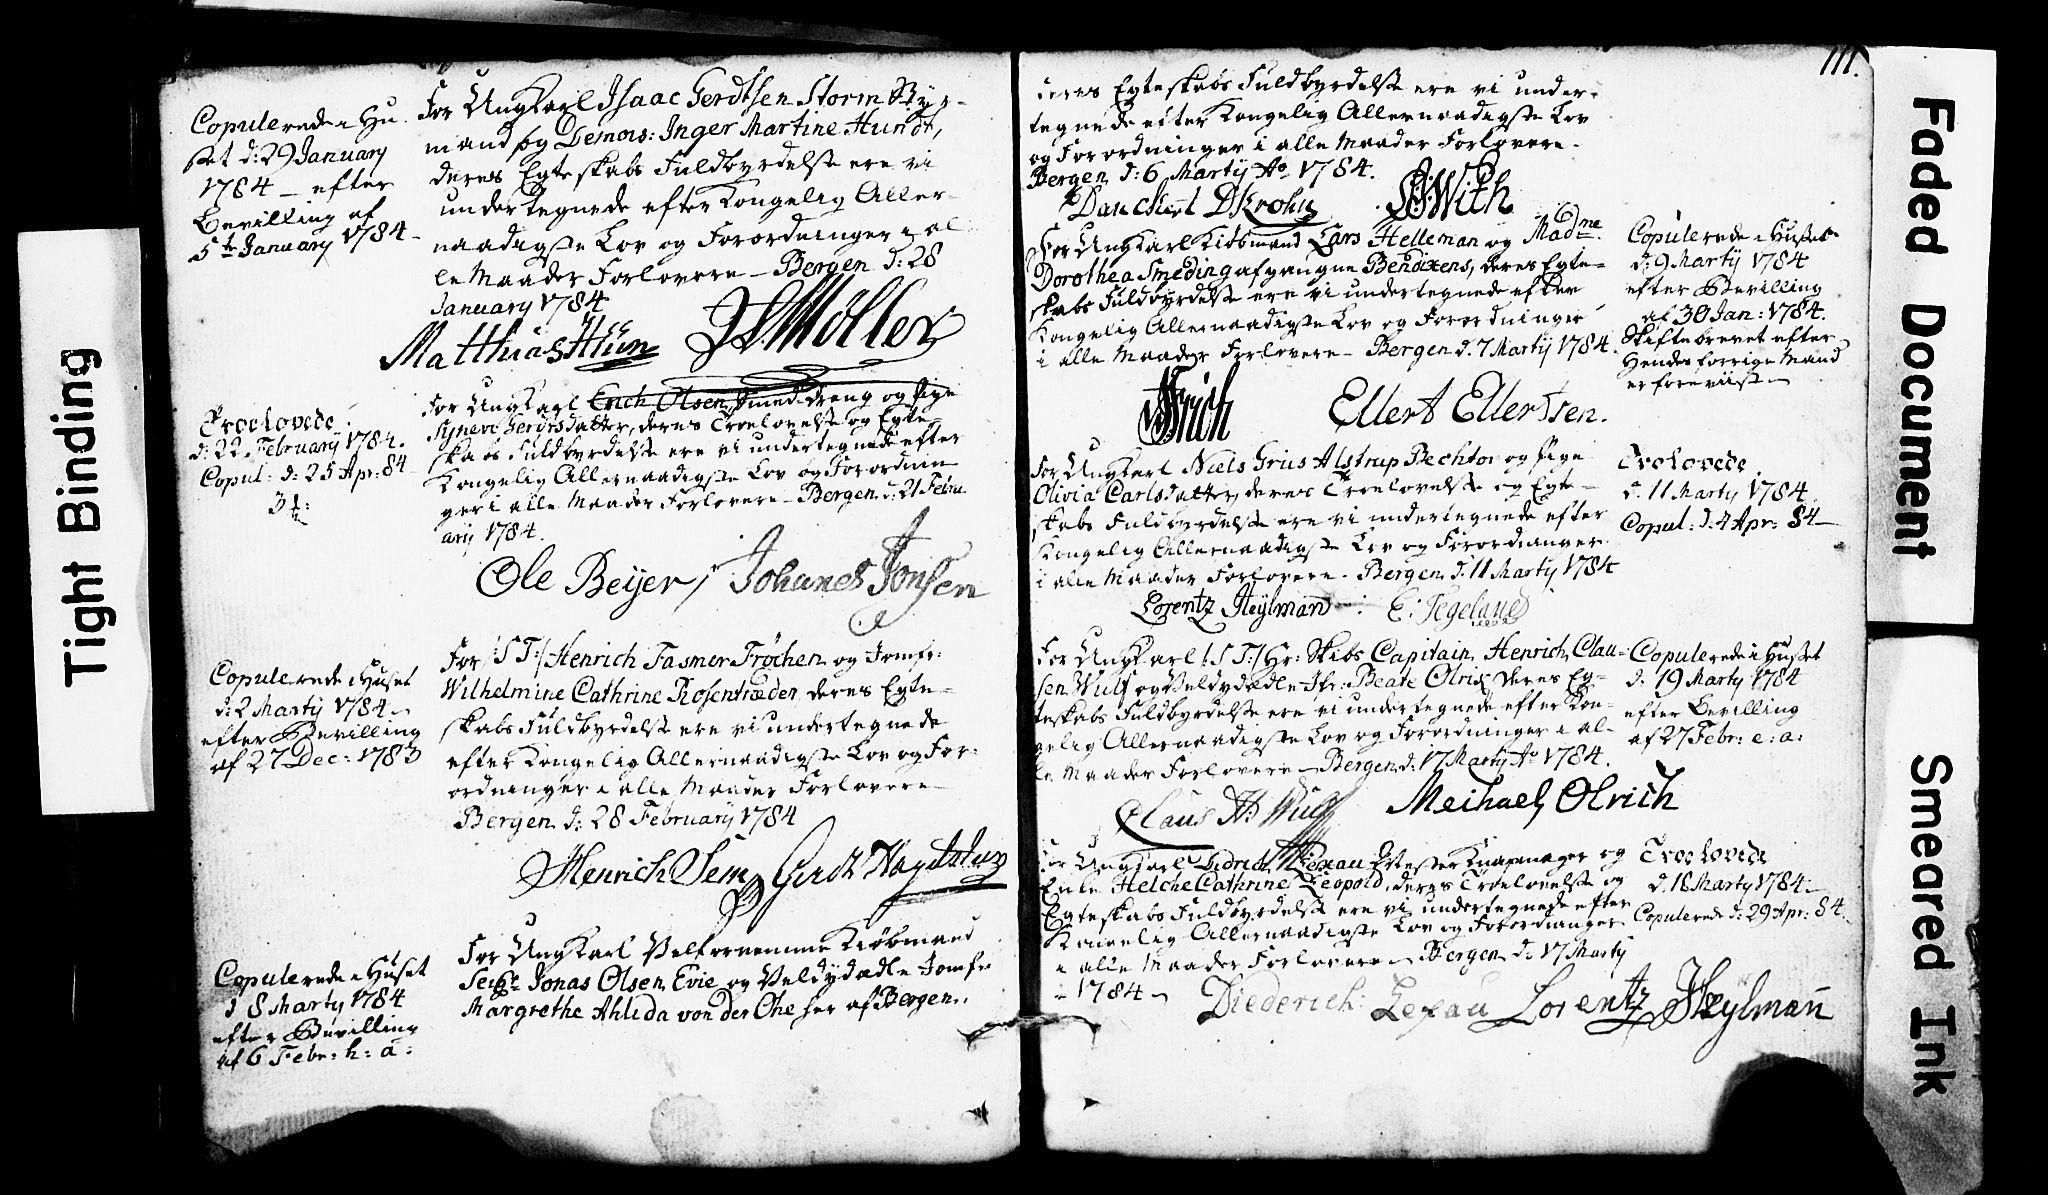 Tight Binding
Copulerede i Hu-
set d: 29 January
1784 – efter
Bevilling af
5te January 1784
For Ungkarl Isaac Gerdtsen Storm Styr-
mand og Demois: Inger Martine Hundt,
deres Egteskabs Fuldbyrdelse ere vi
undertegnede efter Kongelig Aller-
naadigste Lov og Forordninger i al-
le Maader Forlovere – Bergen d: 28
January 1784
Matthias J: S: Möller
Troelovede
d: 22 February 1784.
Copul: d: 25 Apr: 84
3 ½
For Ungkarl Erich Olsen, Smeddreng og Pige
Synevi Gerdsdatter, deres Troelovelse og Egte-
skabs Fuldbyrdelse ere vi undertegnede efter
Kongelig Allernaadigste Lov og Forordnin
ger i alle Maader Forlovere – Bergen d: 21 Febru-
arij 1784.
Ole Beijer, Johanes Jonsen
Copulerede i Huset
d: 2 Martij 1784
efter Bevilling
af 27 Dec: 1783
For /:S:T:/ Henrich Fasmer Fröchen og Jomfr:
Wilhelmine Cathrine Rosentræder, deres Egte-
skabs Fuldbyrdelse ere vi undertegnede
efter Kongelig Allernaadigste Lov og For:
ordninger i alle Maader Forlovere –
Bergen d: 28 Februarij 1784
Henrich Sem Gerdt
Copulerede i Huset
d 8 Marty 1784
efter Bevilling
af 6 Febr: h: a:
For Ungkarl Velfornemme Kiöbmand
Senr Jonas Olsen Evie og Veldydædle Jomfr
Margrethe Ahlida von der Ohe her af Bergen,
111.
deres Egteskabs Fuldbyrdelse ere vi under-
tegnede efter Kongelig Allernaadigste Lov
og Forordninger i alle Maader Forlovere.
Bergen d: 6 Marty Ao 1784.
Danchert D Krohn With
For Ungkarl Kiöbmand Lars Helleman og Madme
Dorothea Smeding afgangne Bendixens, deres Egte-
skabs Fuldbyrdelse ere vi undertegnede efter
Kongelig Allernaadigste Lov og Forordninger
i alle Maader Forlovere – Bergen d. 7 Martij 1784.
Frich Ellert Ellertsen.
Copulerede i Huset
d: 9 Martij 1784
efter Bevilling
af 30 Jan: 1784.
Skiftebrevet efter
Hendes forrige Mand
er foreviist –
For Ungkarl Niels Griis Alstrup Bechtor og Pige
Olivia Carlsdatter, deres Troelovelse og Egte-
skabs Fuldbyrdelse ere vi undertegnede efter
Kongelig Allernaadigste Lov og Forordninger
i alle Maader Forlovere. Bergen d. 11 Marty 1784
Lorentz Heylman E:
Troelovede
d. 11 Marty 1784.
Copul: d: 4 Apr: 84 –
For Ungkarl /:S:T:/ Hr: Skibs Capitain Henrich Clau-
sen Wulf og Veldydædle Jfr: Beate Olrich deres Eg-
teskabs Fuldbyrdelse ere vi undertegnede efter Kon-
gelig Allernaadigste Lov og Forordninger i al-
le Maader Forlovere – Bergen d: 17 Marty Ao 1784.
Claus Wulf Meihael Olrich
Copulerede i Huset
d: 19 Marty 1784
efter Bevilling
af 27 Febr: e: a:
For Ungkarl Lexau Mester Knapmager og
Enke Helche Cathrine Leopold, deres Troelovelse og
Egteskabs Fuldbyrdelse ere vi undertegnede efter
Kongelig Allernaadigste Lov og Forordninger
i alle Maader Forlovere – Bergen d: 17 Marty
1784 –
Diederich Lexau Lorentz Heylman
Troelovede
d. 18 Marty 1784 –
Copulerede d: 29 Apr: 84.
Faded Document
Smeared Ink